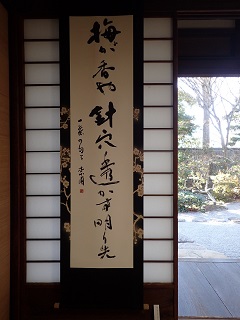 梅が香や針穴透かす明り先
一茶の句